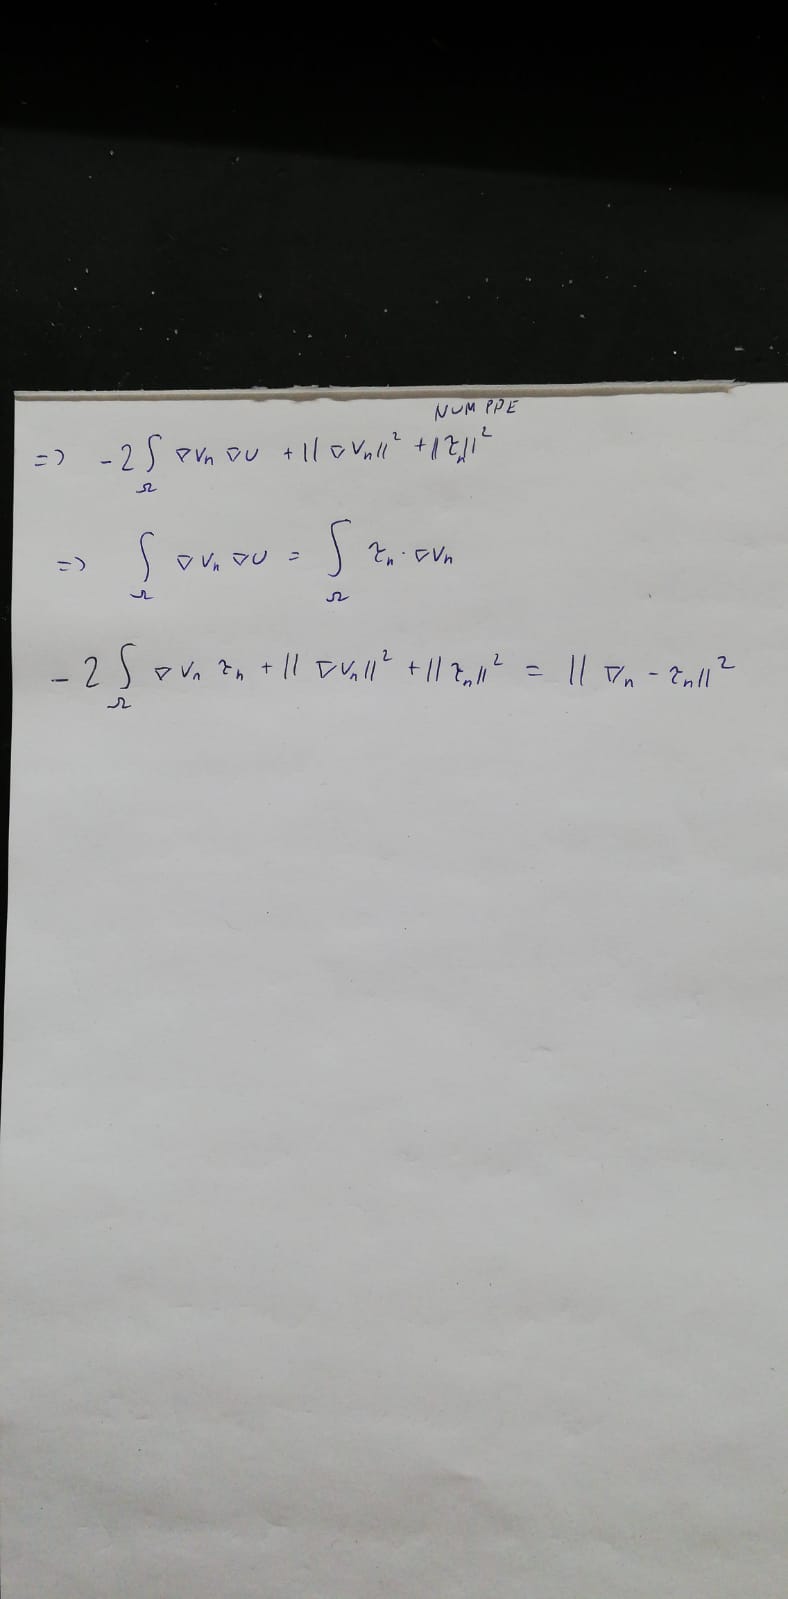 NUM PDE
=> -2 ∫_Ω ∇v_n ∇u + ||∇v_n||² + ||τ_n||²
=> ∫_Ω ∇v_n ∇u = ∫_Ω τ_n · ∇v_n
-2 ∫_Ω ∇v_n τ_n + ||∇v_n||² + ||τ_n||² = ||∇_n - τ_n||²